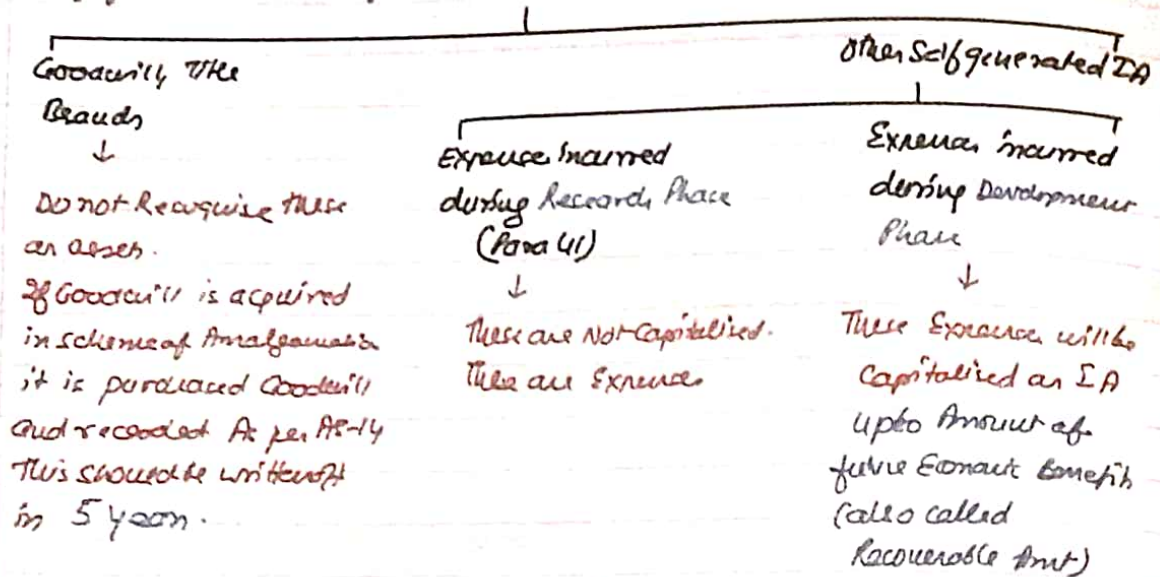 Goodwill, Title
Brands
↓
Do not Recognise these
as assets.
If Goodwill is acquired
in scheme of Amalgamation
it is purchased Goodwill
and recorded As per AS-14
This should be written off
in 5 years.
Other Self generated IA
Expense incurred
during Research Phase
(Para 41)
↓
These are Not Capitalised.
These are Expense
Expense incurred
during Development
Phase
↓
These Expense will be
Capitalised as IA
upto Amount of
future Economic Benefits
(also called
Recoverable Amt)